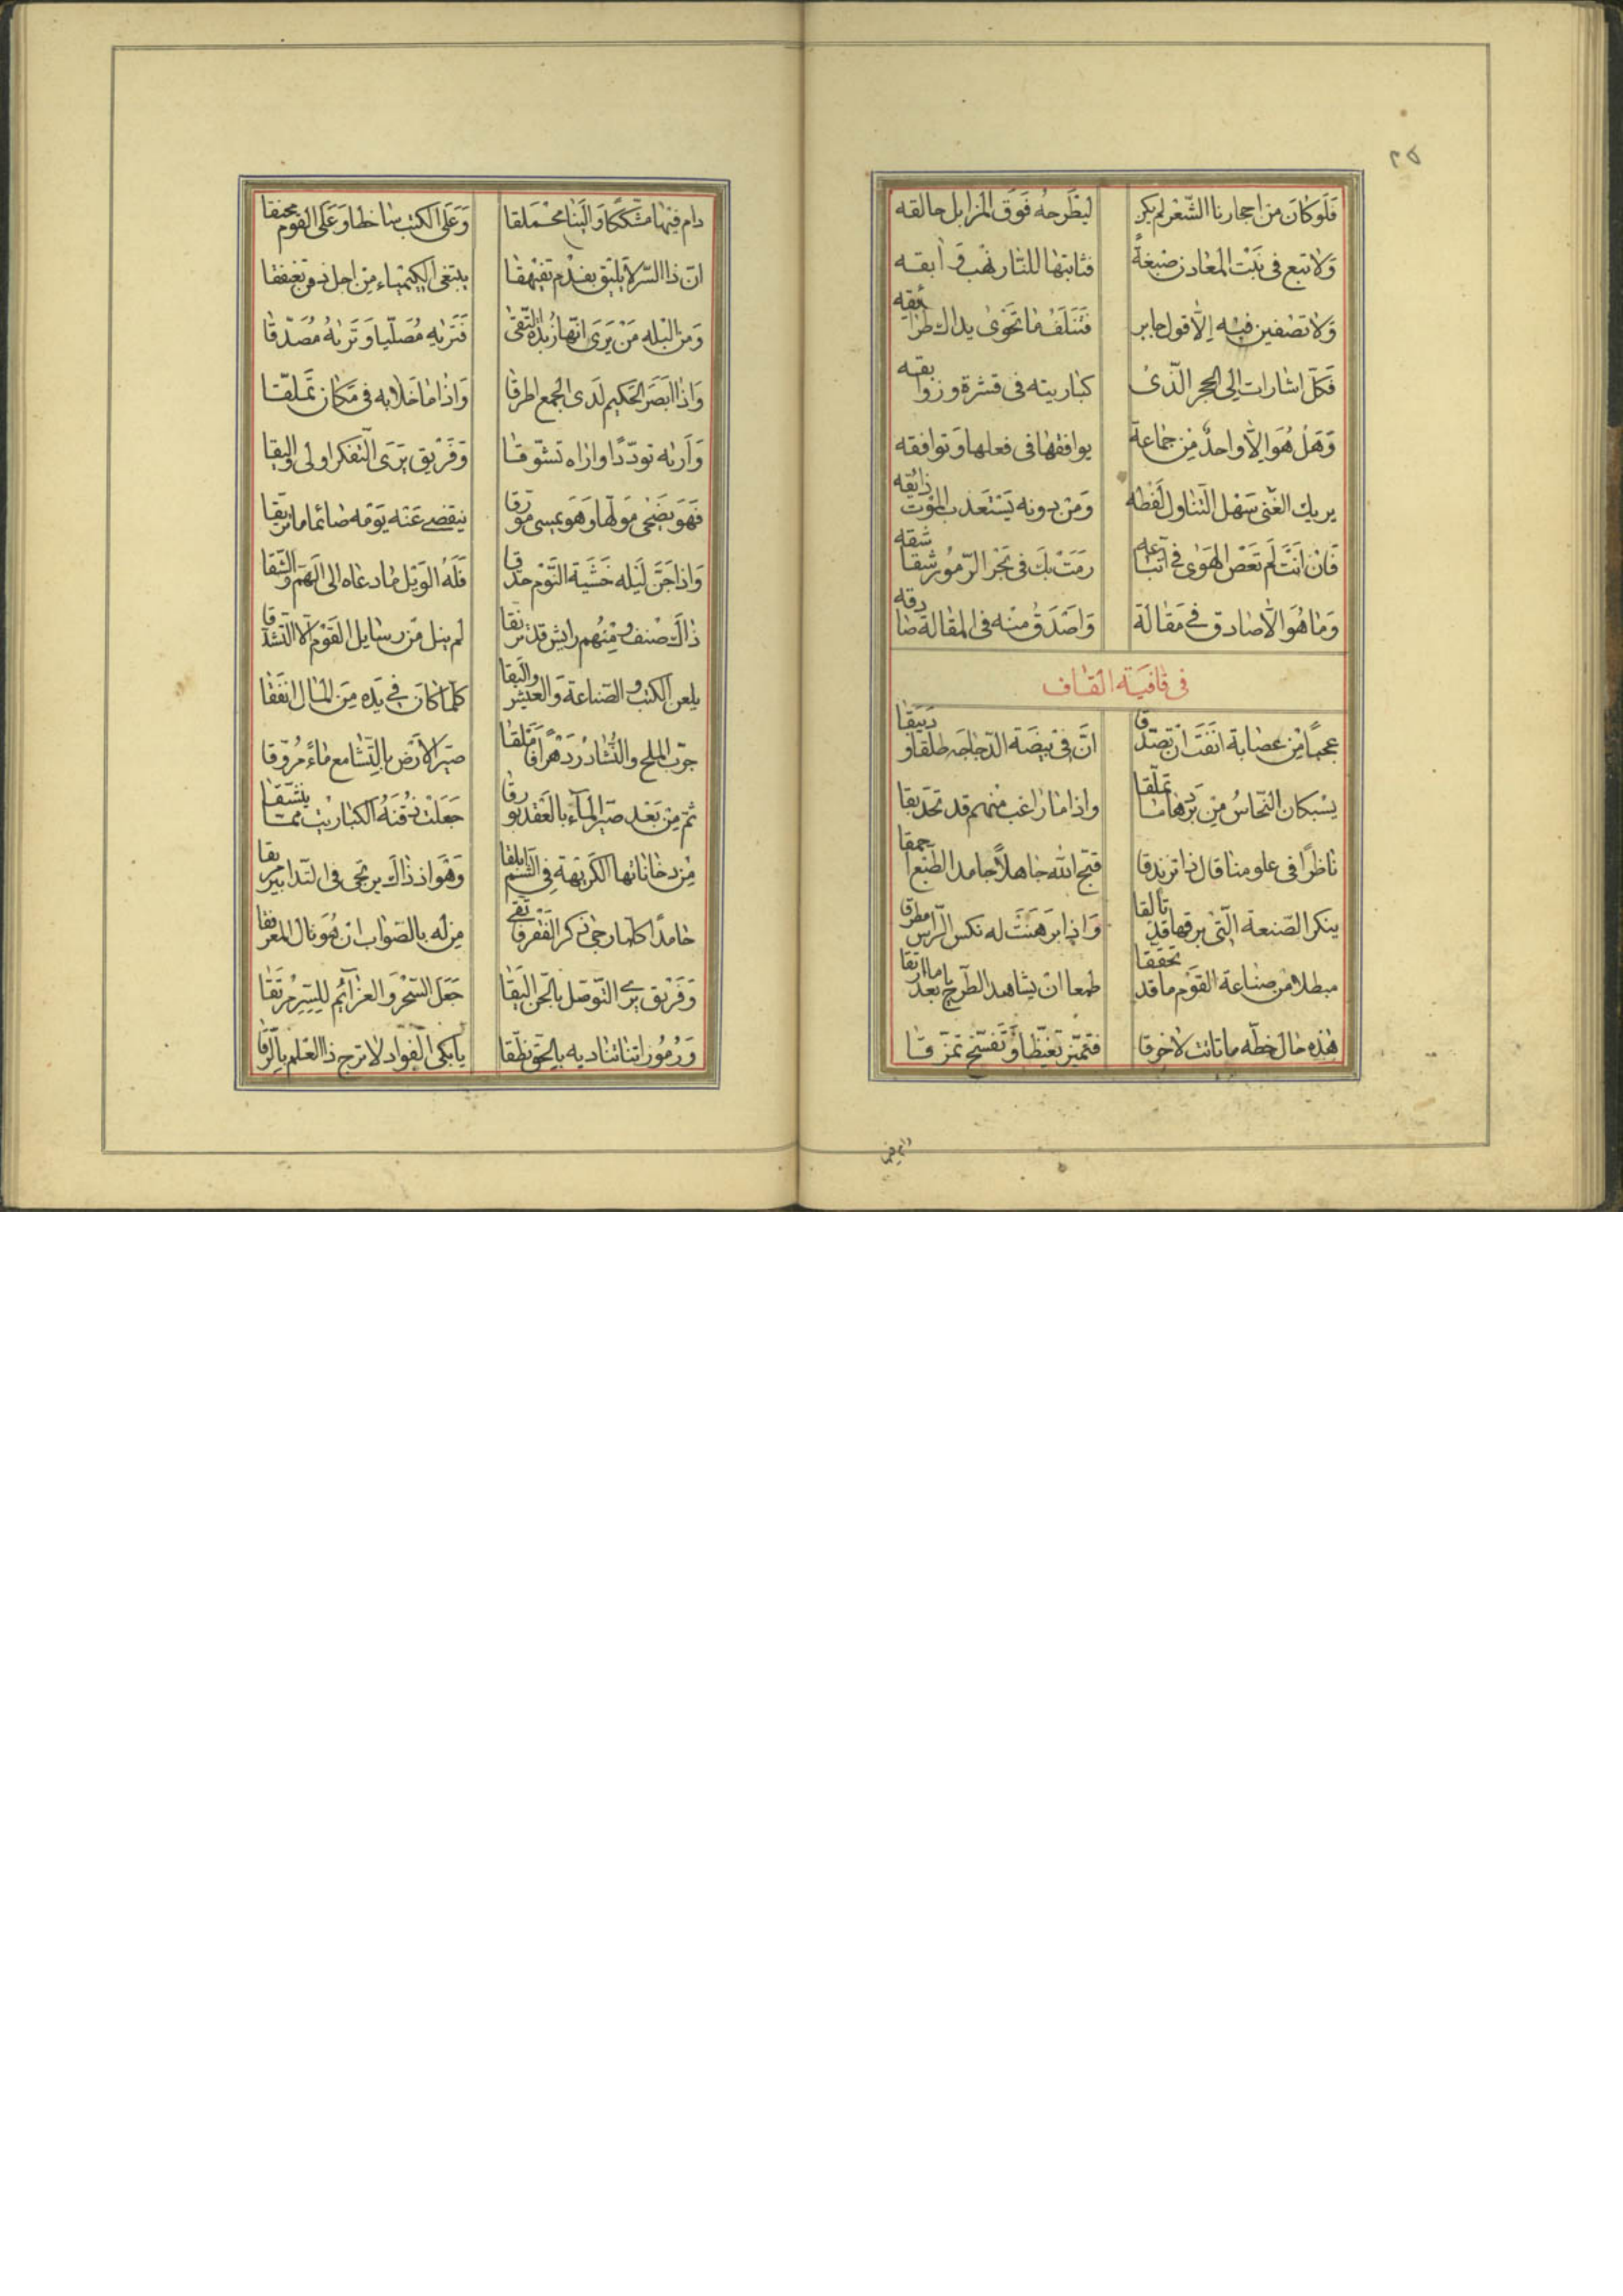 ٢٥
فَلَوكانَ من احجارنا الشّعر لم يكن ليطرحهُ فَوقَ المزابل حالقه
وَلا تبغ فى نَبْت المعادن صبغةً فنابتها للنّار نهب
وَلا تصغين فيه إلّا قول جابر فتتلف ما تحوى يداك طرائقه
فَكلّ اشارات الى الحجر الّذى كباريته فى قشرة وزوابقه
وَهَل هُوَ الّا واحدٌ مِن جماعة يوافقها فى فعلها وتوافقه
يريك الغنى سَهْل التّناول لَفظه وَمن دونه يَستعذب الموت ذائقه
فَان انتَ لَم تعص الهَوى فى اتّباعه رمت بك فى بحر الرّموز شقاشقه
وَما هُوَ الّا صادق فى مَقالة وَاصْدَق منه فى المقالة صادقه
فى قافيَة القاف
عجباً من عصابة انَفَت ان تصدّقا انّ فى بيضَة الدّجاجَه طلقا و دبيقا
يسبكان النّحاسُ مِن واذا ما راغب منهم قد تحذيقا
ناظرًا فى علومنا قال ذا تزندقا قبّح الله جاهلاً جامد الطّبع احمقا
ينكر الصّنعة الّتى برقها قد تألقا وَاذا برهنَت له نكس الرّاس مطرقا
مبطلا من صناعة القوم ما قد تحققا طمعا ان يشاهد الطّرح
هذه حال خطّه ما تانث لاخرقا فتميّز تغيّظا وَتفسّخ تمزّقا
دام فيها
دام فيها مشكّكا وَعَلى الكتب ساخطا وَعَلى القوم محنقا
انّ ذا السّر لا يليق بفدْم تفيهقا يبتغى الكيمياء مِن اجل
وَمن البله مَنْ يَرَى انّها زبدة التّقى فَتَريه مُصَلّيا وَتَريهُ مُصَدّقا
وَاذا ابصَرَ الحَكيم لَدَى الجمع اطرقا وَاذا ما خلا به فى مَكان تَملّقا
وَاريه تودّدًا واراه تشوّقا وَفَريق يَرَى التّفكر اولى واليقا
فَهوَ يَضحى مَولّها وَهو يمسى مؤرّقا ينقضى عَنه يَومه صائما ما تريّقا
وَاذا جَنّ لَيله خَشيَة النّوم حدّقا فَلَهُ الوَيل ما دعاه الى الهَمّ والشّقا
ذاك صنف وَمنهم رايش قد لم ينل مّن رسايل القَوم الّا التشدّقا
يلعن الكتب و الصّناعة وَالعيش والبقا كلّما كانَ فى يَده مِن المال انفقا
جرّب الملح والنّشادُر دَهراً صيّر الارض بالتّشامع ماءً مُروّقا
ثمّ مِن بَعد صيّر المآء بالعَقد جَعَلت ذقنهُ الكباريت
مِن دخاناتها الكريهة فى الشّم وَهُوَ اذ ذاك يرتجى فى التّدابير
حامدًا كلّما رجى ذكر الفَقر مِن له بالصّواب ان هُو نال
وَفَريق يرى التّوصّل بالجنّ اليَقا جَعَل السّحر وَالعزآئم للسّرّ مرتَقا
وَرُمُوز اتنا تناديه بالحقّ نطّقا يا بكى الفواد لا ترج ذا العلم بالرّقا